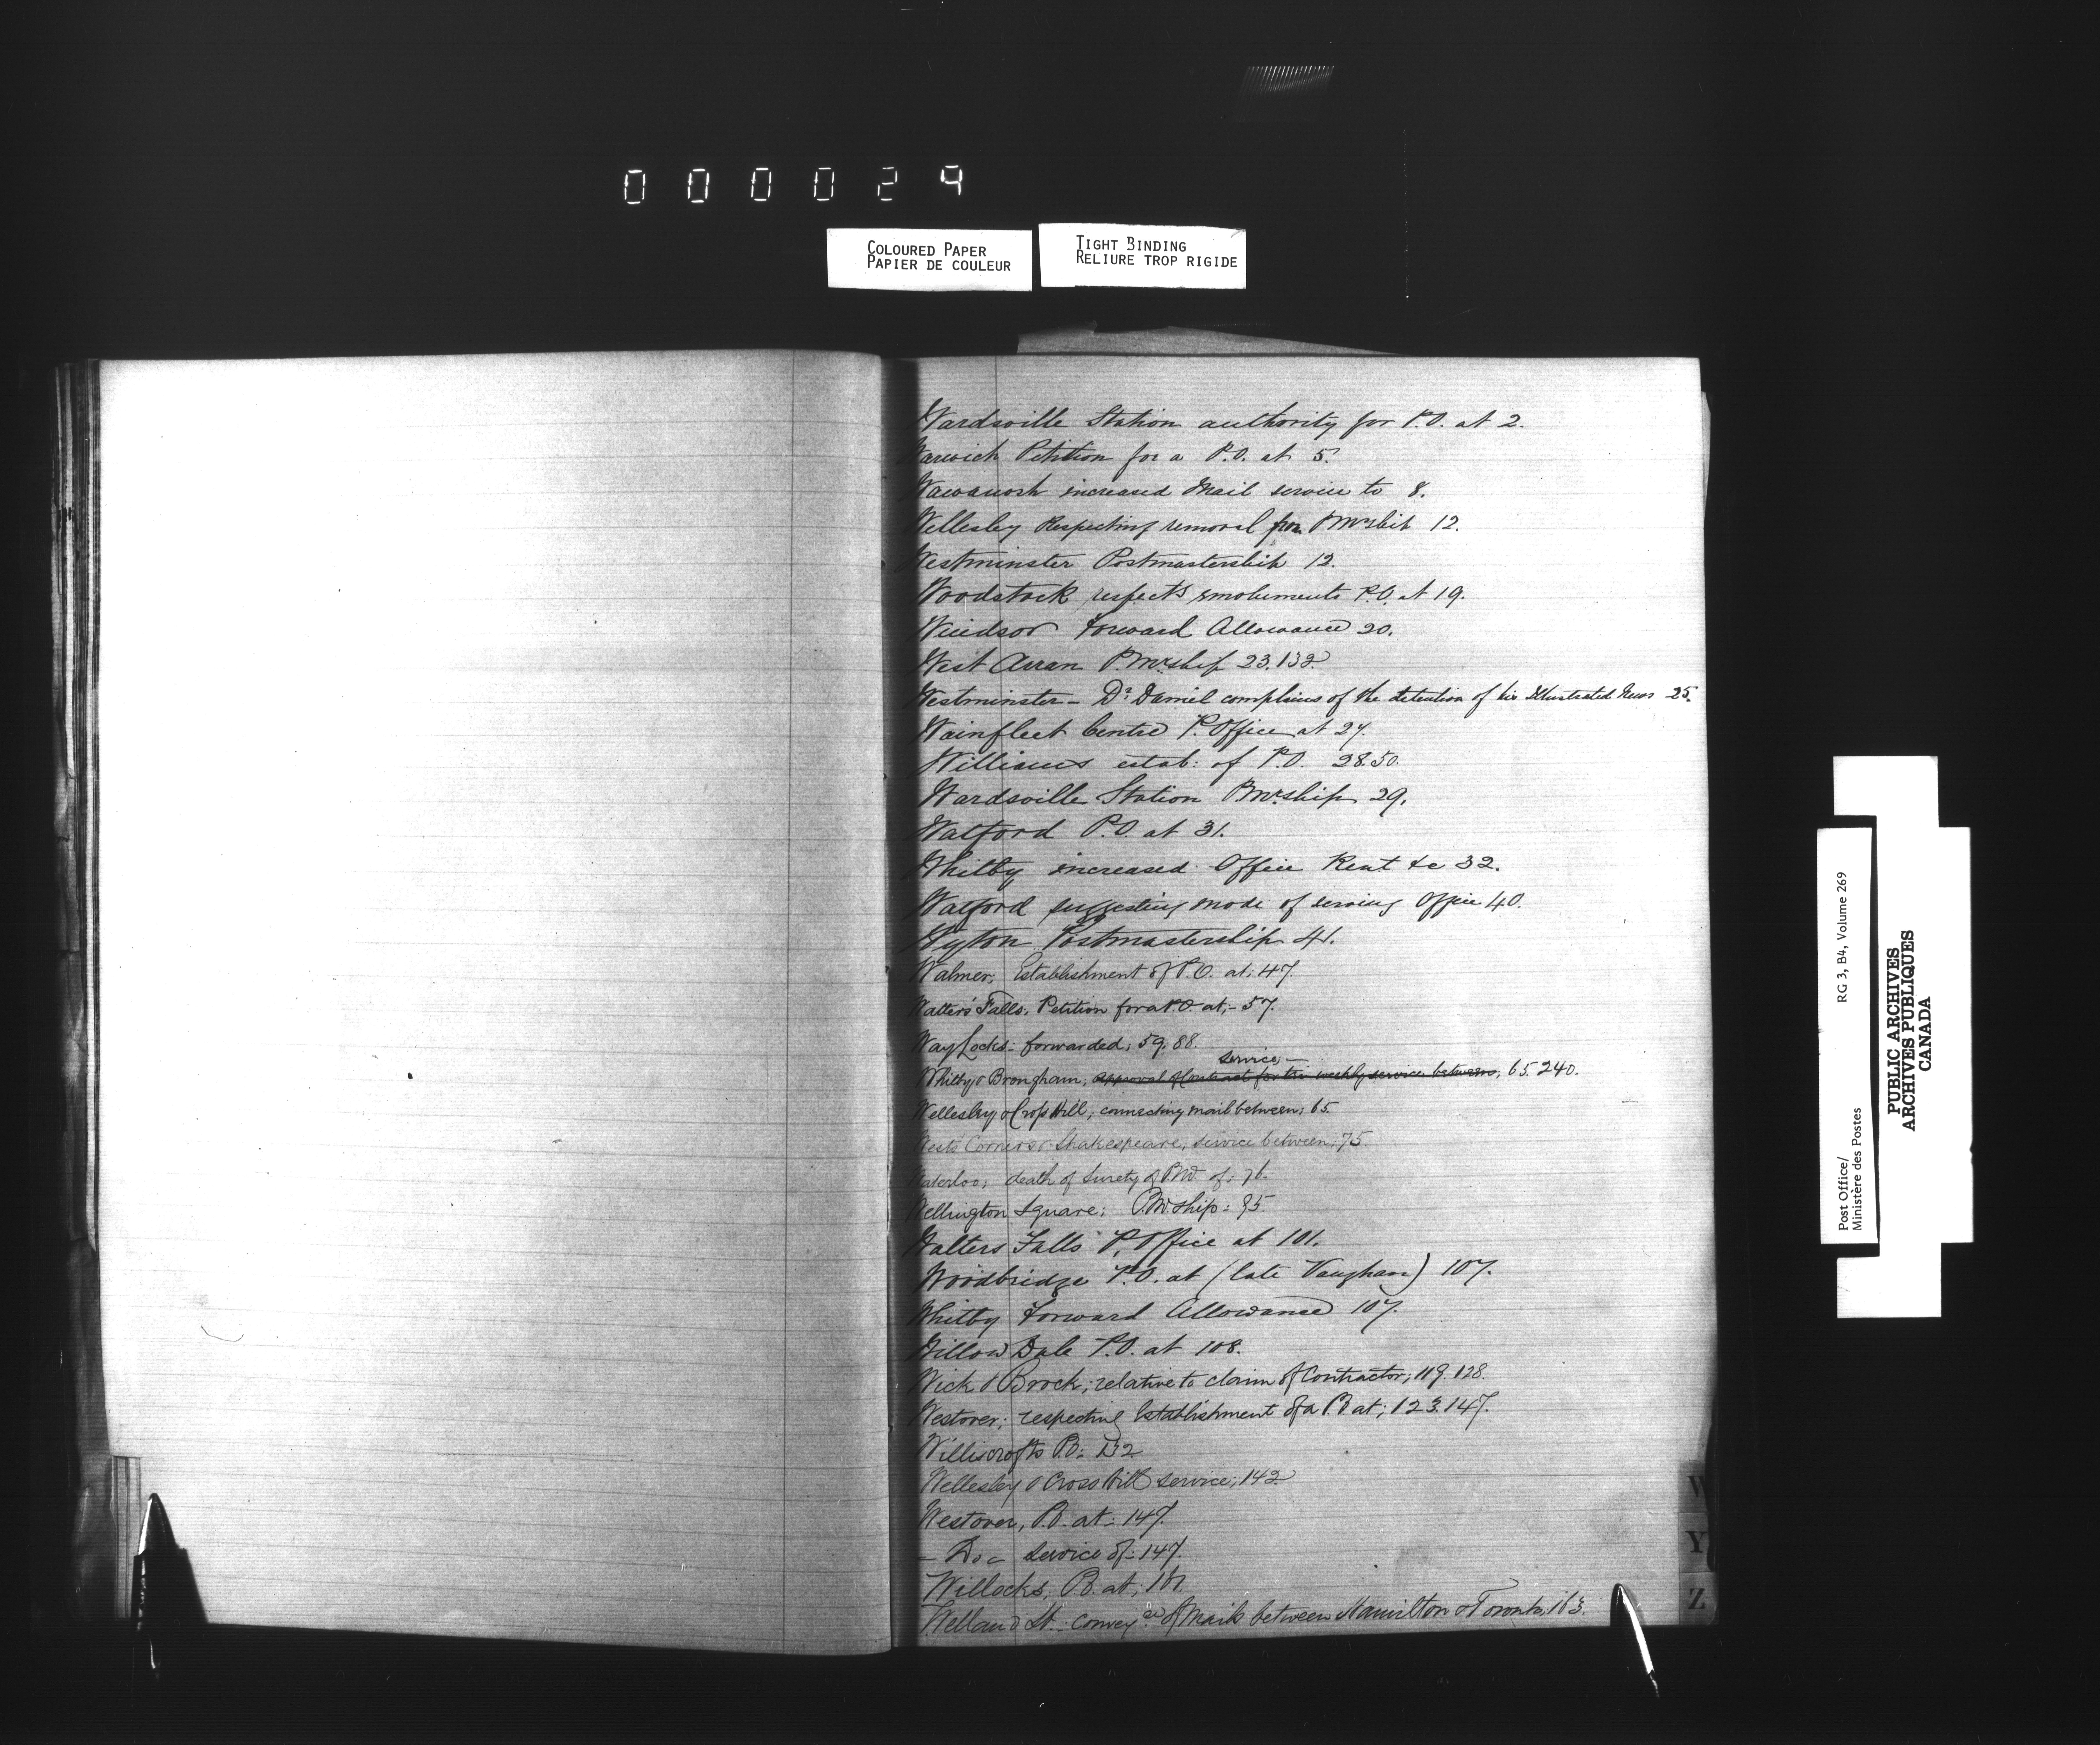 000029
COLOURED PAPER
PAPIER DE COULEUR
TIGHT BINDING
RELIURE TROP RIGIDE
Wardsville Station authority for P.O. at 2.
Warwick Petition for a P.O. at 5.
Wawanosh increased Mail service to 8.
Wellesley Respecting removal from PMrship 12.
Westminster Postmastership 12.
Woodstock respect'g emoluments P.O. at 19.
Windsor Forward Allowance 20.
West Arran P.Mrship 23.132
Westminster - Dr Daniel complains of the detention of his Illustrated News 25.
Wainfleet Centre P. Office at 27.
Williams estab: of P.O. 28.50.
Wardsville Station PMrship 29.
Watford P.O. at 31.
Whitby increased Office Rent &c 32.
Watford suggesting mode of serving Office 40.
Wyton Postmastership 41.
Walmer, Establishment of P.O. at; 47.
Walters' Falls, Petition for a P.O. at;- 57.
Way Locks - forwarded; 59. 88.
service,-
Whitby & Brougham; approval of Contract for tri-weekly service between; 65. 240.
Wellesley & Cross Hill; connecting mail between; 65.
Wests Corners & Shakespeare, service between; 75
Waterloo; death of Surety of P.M. of; 76.
Wellington Square; P.M.ship: 95.
Walters Falls P. Office at 101.
Woodbridge P.O. at (late Vaughan) 107.
Whitby Forward Allowance 107.
Willow Dale P.O. at 108.
Wick & Brock; relative to claim of Contractor; 119. 128.
Westover; respecting Establishment of a P.O. at; 123. 147.
Williscrofts P.O: 132
Wellesley & Cross Hill service; 142
Westover, P.O. at: 147.
- Do - service of: 147.
Willocks; P.O. at; 161.
Welland St. convey'ce of Mails between Hamilton & Toronto; 163.
W
Y
Z
Post Office/ RG 3, B4, Volume 269
Ministère des Postes
PUBLIC ARCHIVES
ARCHIVES PUBLIQUES
CANADA